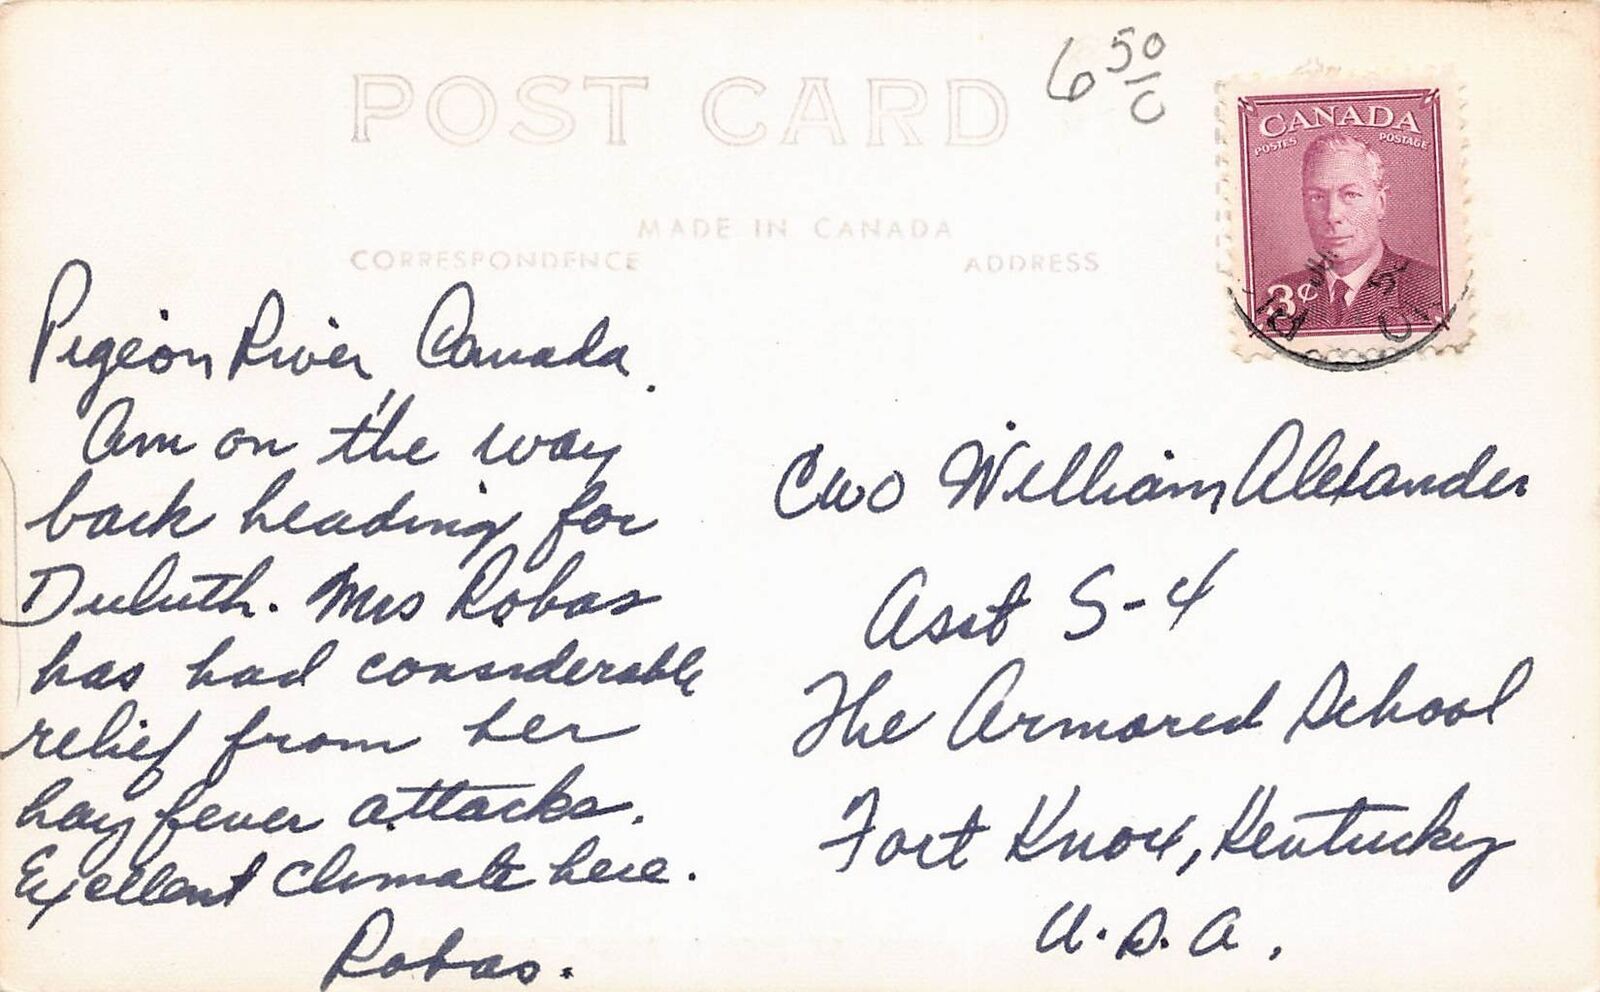 6 50/C
POST CARD
CANADA
POSTES POSTAGE
3¢
MADE IN CANADA
CORRESPONDENCE
ADDRESS
Pigeon River, Canada.
Am on the way
back heading for
Duluth. Mrs Robas
has had considerable
relief from her
hay fever attacks.
Excellent climate here.
Robas.
CWO William Alexander
Asst S-4
The Armored School
Fort Knox, Kentucky
U.S.A.